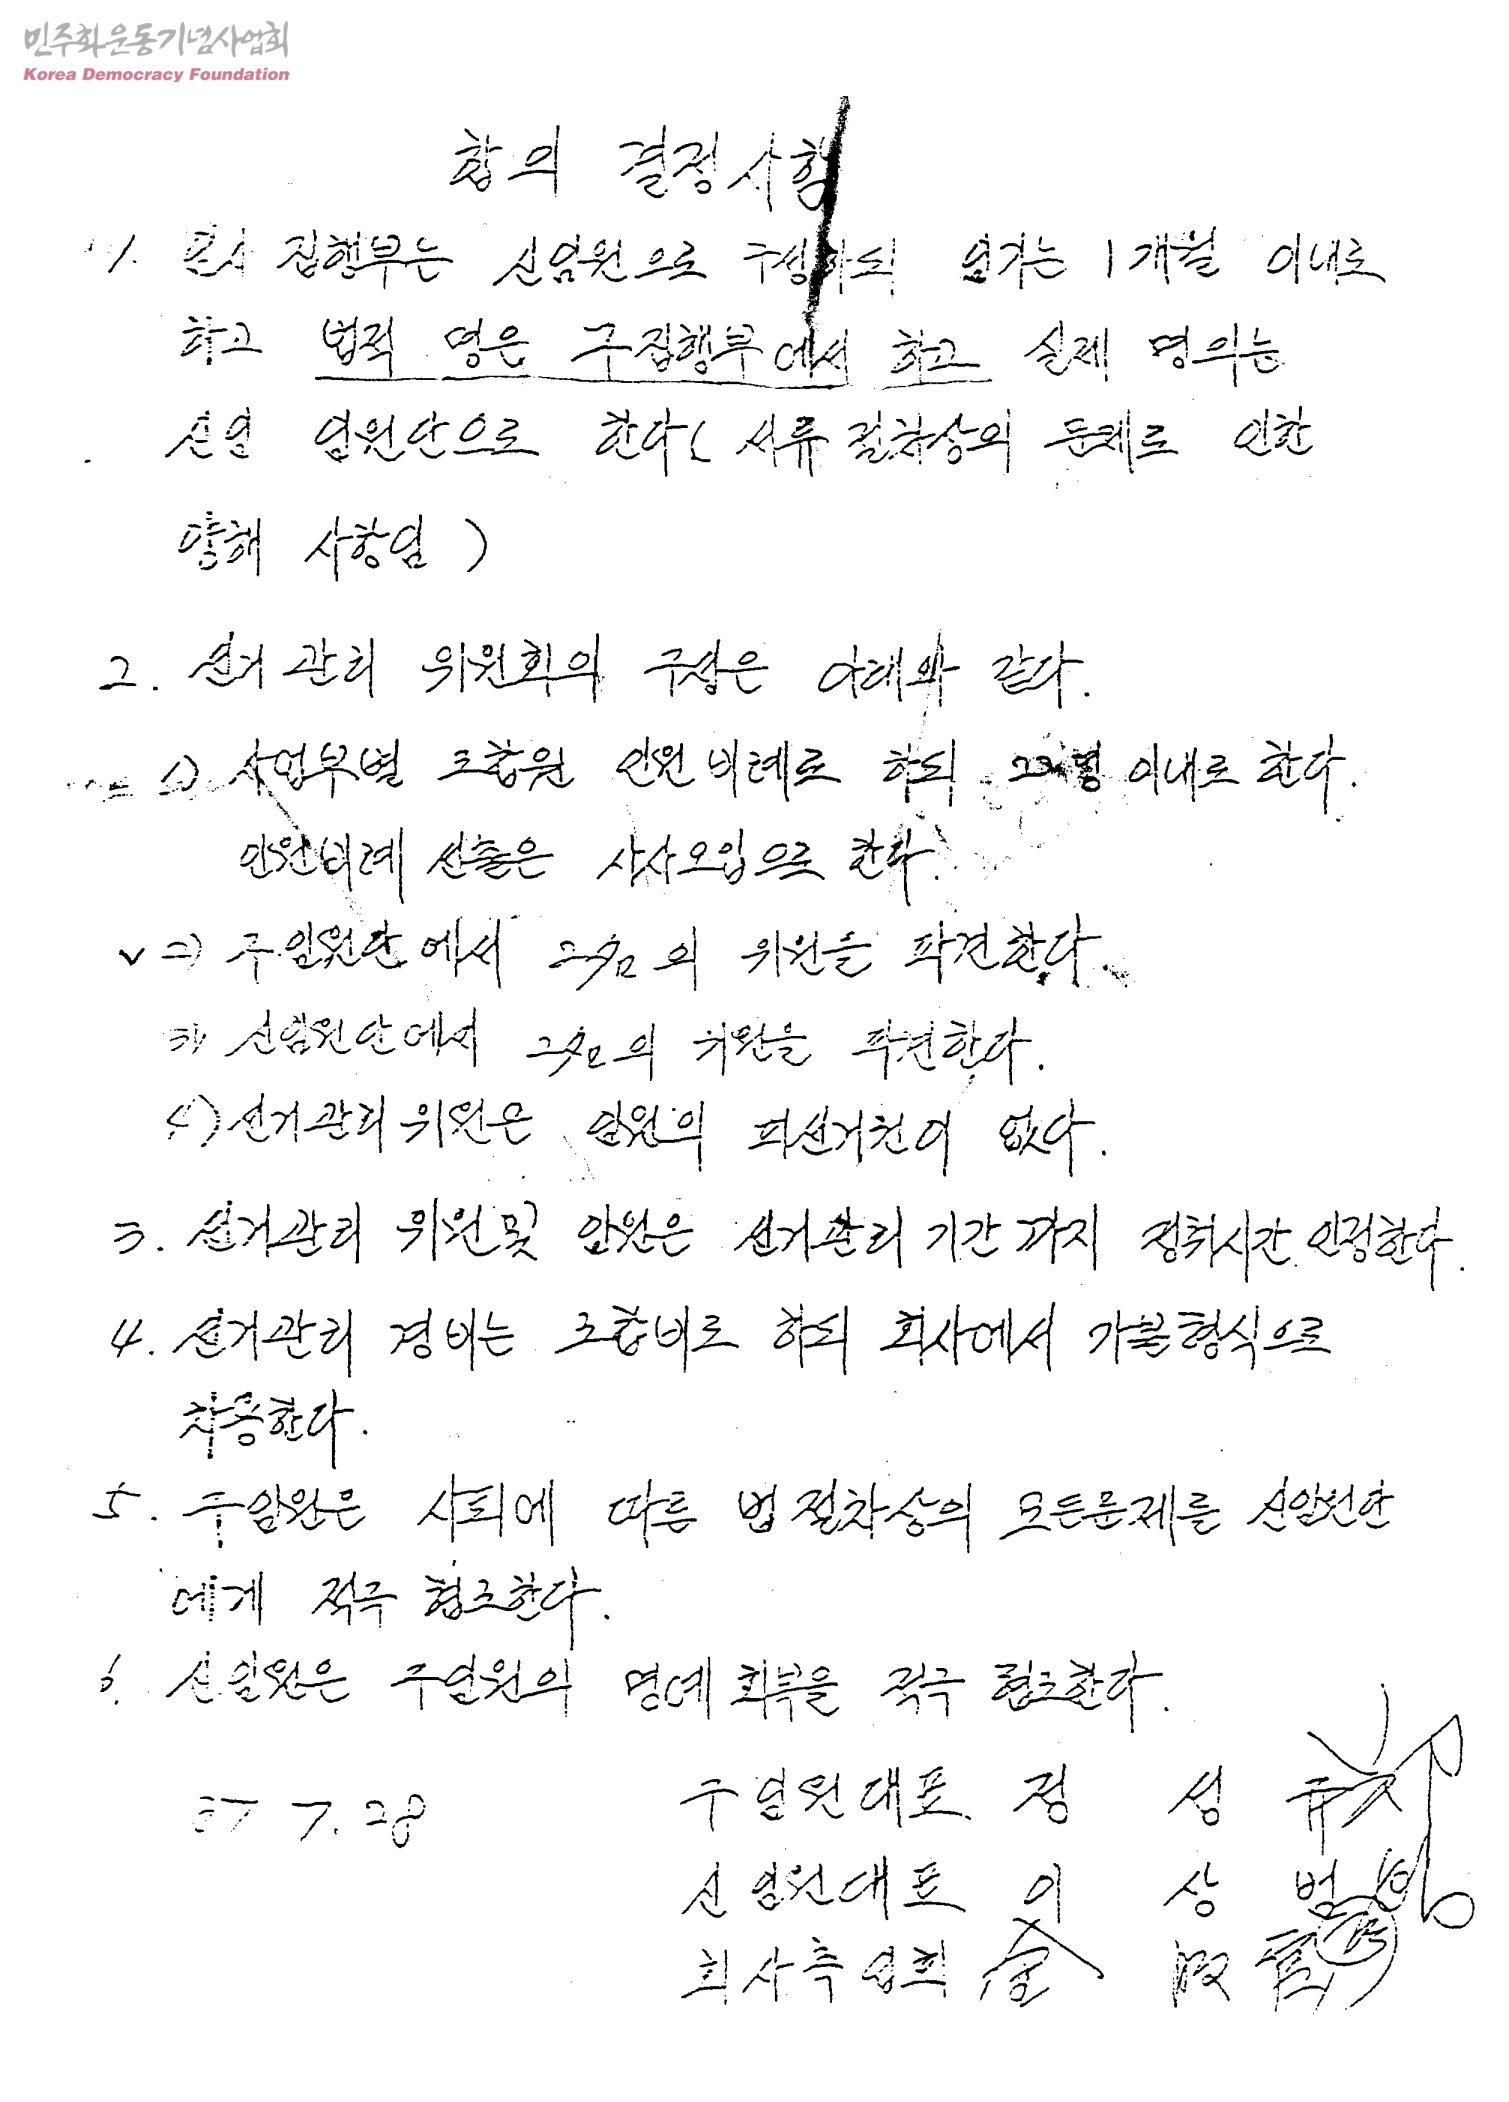 민주화운동기념사업회
Korea Democracy Foundation
합의 결정사항
1. 임시 집행부는 신임원으로 구성하되 임기는 1개월 이내로
하고 법적 명은 구집행부에서 하고 실제 명의는
신임 임원단으로 한다( 서류 절차상의 문제로 인한
양해 사항임 )
2. 선거관리 위원회의 구성은 아래와 같다.
1) 사업부별 조합원 인원비례로 하되 명 이내로 한다.
인원비례 산출은 사사오입으로 한다.
v 2) 구임원단에서 2명의 위원을 파견한다.
3) 신임원단에서 2명의 위원을 파견한다.
4) 선거관리위원은 임원의 피선거권이 없다.
3. 선거관리 위원및 임원은 선거관리 기간까지 정취시간 인정한다.
4. 선거관리 경비는 조합비로 하되 회사에서 가불형식으로
차용한다.
5. 구임원은 사퇴에 따른 법절차상의 모든문제를 신임원단
에게 적극 협조한다.
6. 신임원은 구임원의 명예회복을 적극 협조한다.
87 7. 28
구임원대표 정 성
신임원대표 이 상 범
회사측입회 金